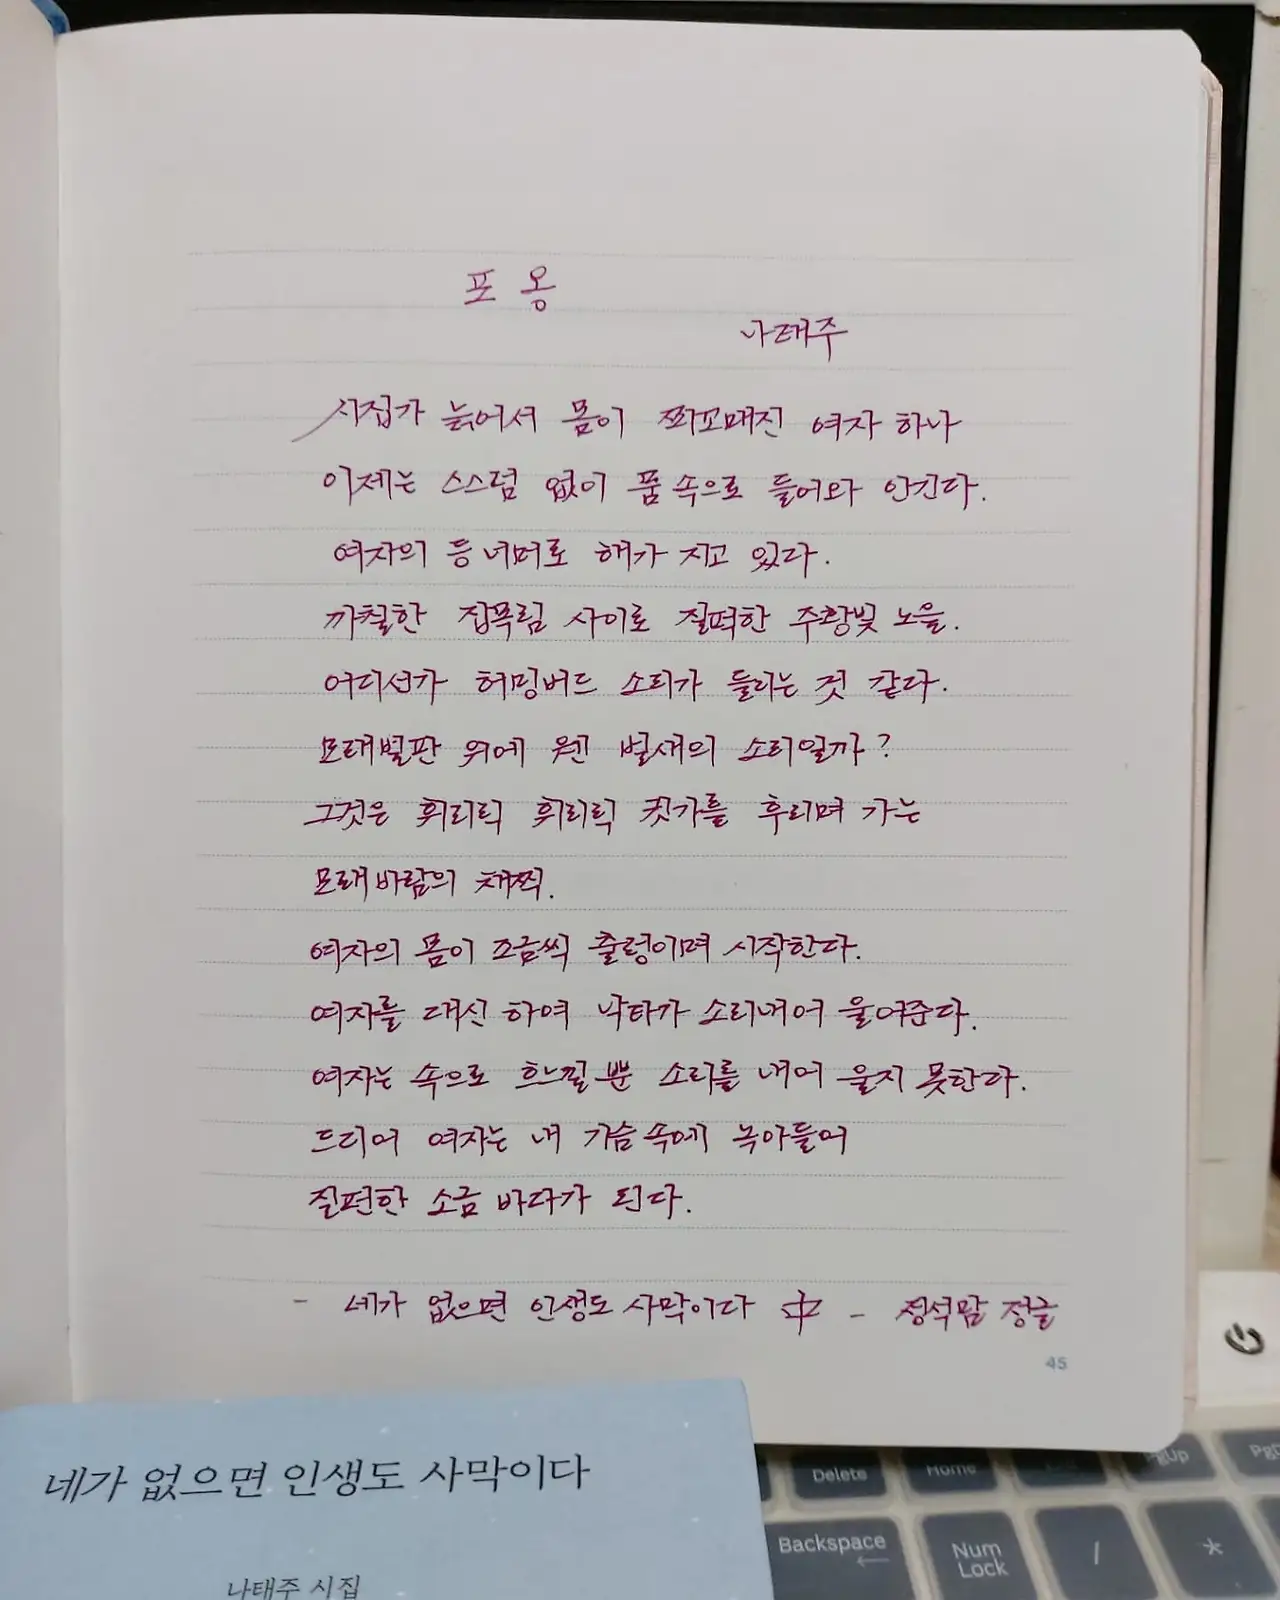 포 옹
나태주
시집가 늙어서 몸이 쪼꼬매진 여자 하나
이제는 스스럼 없이 품 속으로 들어와 안긴다.
여자의 등 너머로 해가 지고 있다.
까칠한 잡목림 사이로 질펀한 주황빛 노을.
어디선가 허밍버드 소리가 들리는 것 같다.
모래벌판 위에 웬 벌새의 소리일까?
그것은 휘리릭 휘리릭 귓가를 후리며 가는
모래바람의 채찍.
여자의 몸이 조금씩 출렁이며 시작한다.
여자를 대신 하여 낙타가 소리내어 울어준다.
여자는 속으로 흐느낄 뿐 소리를 내어 울지 못한다.
드디어 여자는 내 가슴 속에 녹아들어
질펀한 소금 바다가 된다.
- 네가 없으면 인생도 사막이다 中 - 정석맘 정글
45
네가 없으면 인생도 사막이다
나태주 시집
Delete Home PgUp
Backspace Num Lock / *